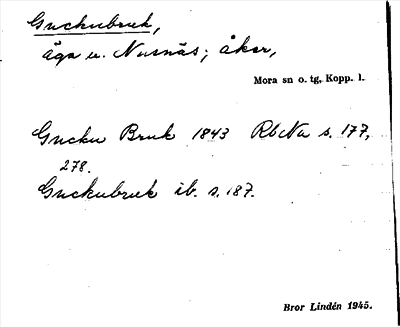 Guckubruk,
äga u. Nusnäs; åker,
Mora sn o. tg, Kopp. l.
Gucku Bruk 1843 RbNa s. 177,
278.
Guckubruk ib. s. 187.
Bror Lindén 1945.